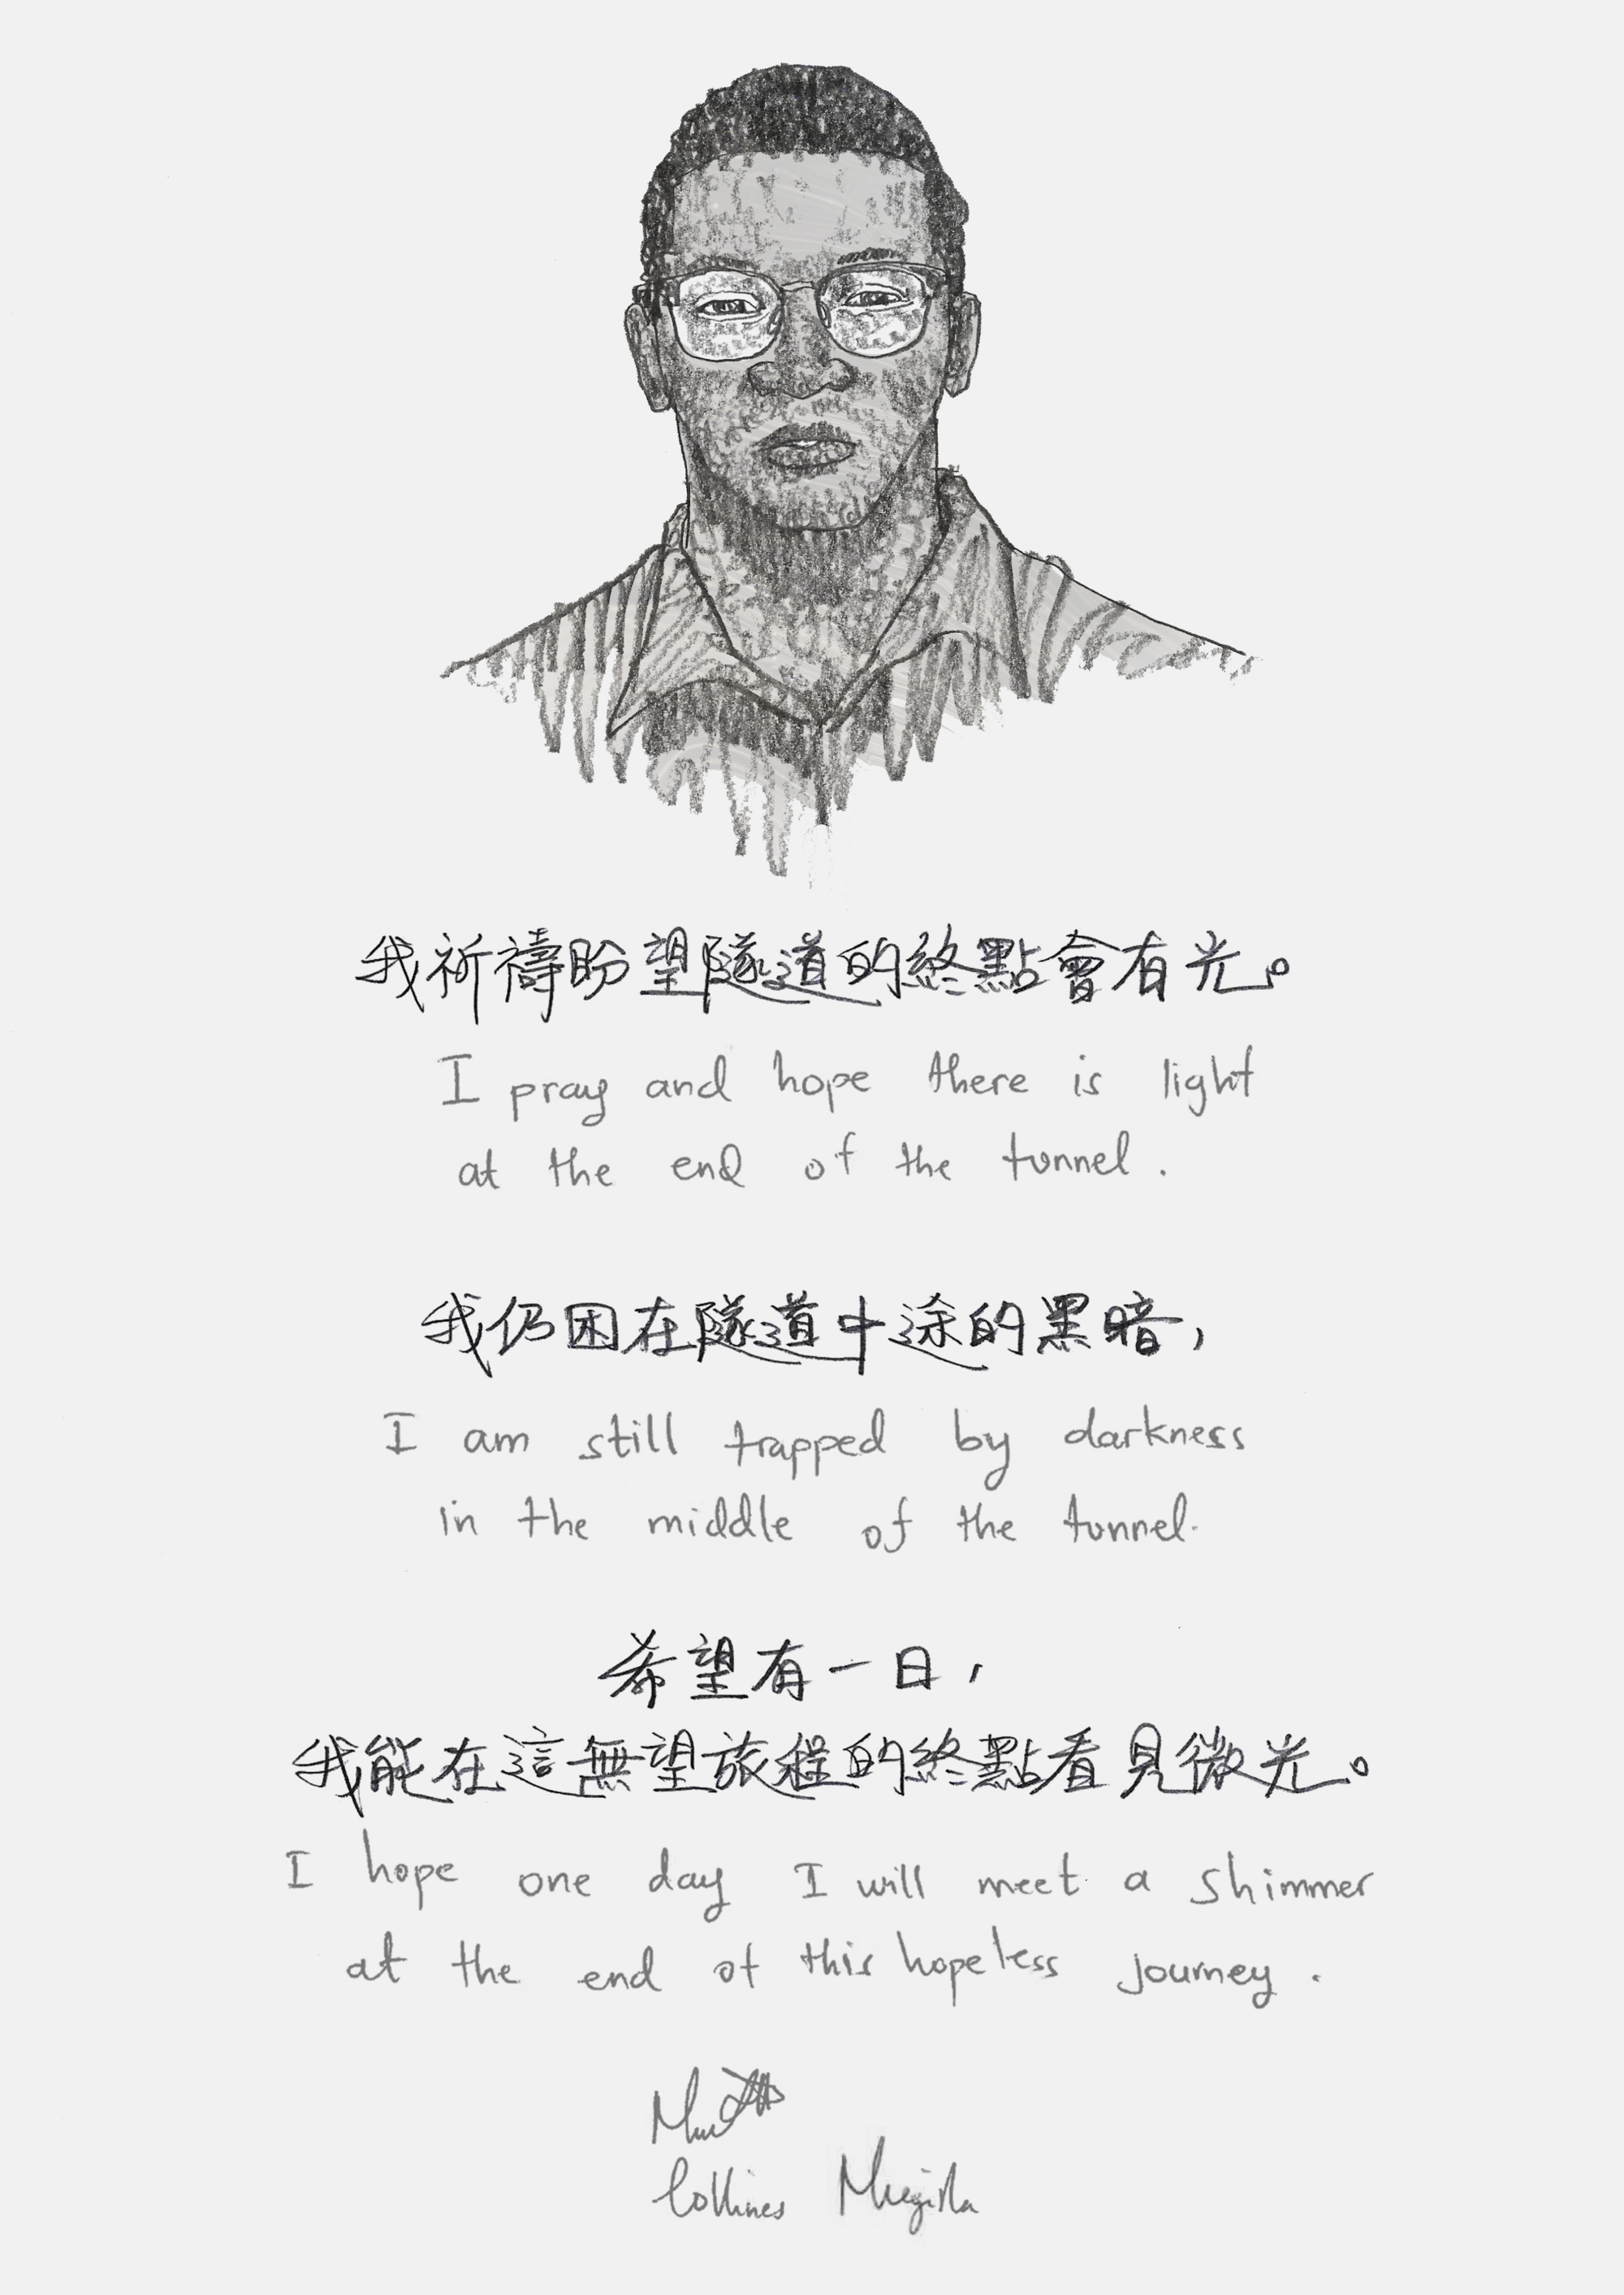 我祈禱盼望隧道的終點會有光。
I pray and hope there is light
at the end of the tunnel.
我仍困在隧道中途的黑暗，
I am still trapped by darkness
in the middle of the tunnel.
希望有一日，
我能在這無望旅程的終點看見微光。
I hope one day I will meet a shimmer
at the end of this hopeless journey.
Collines